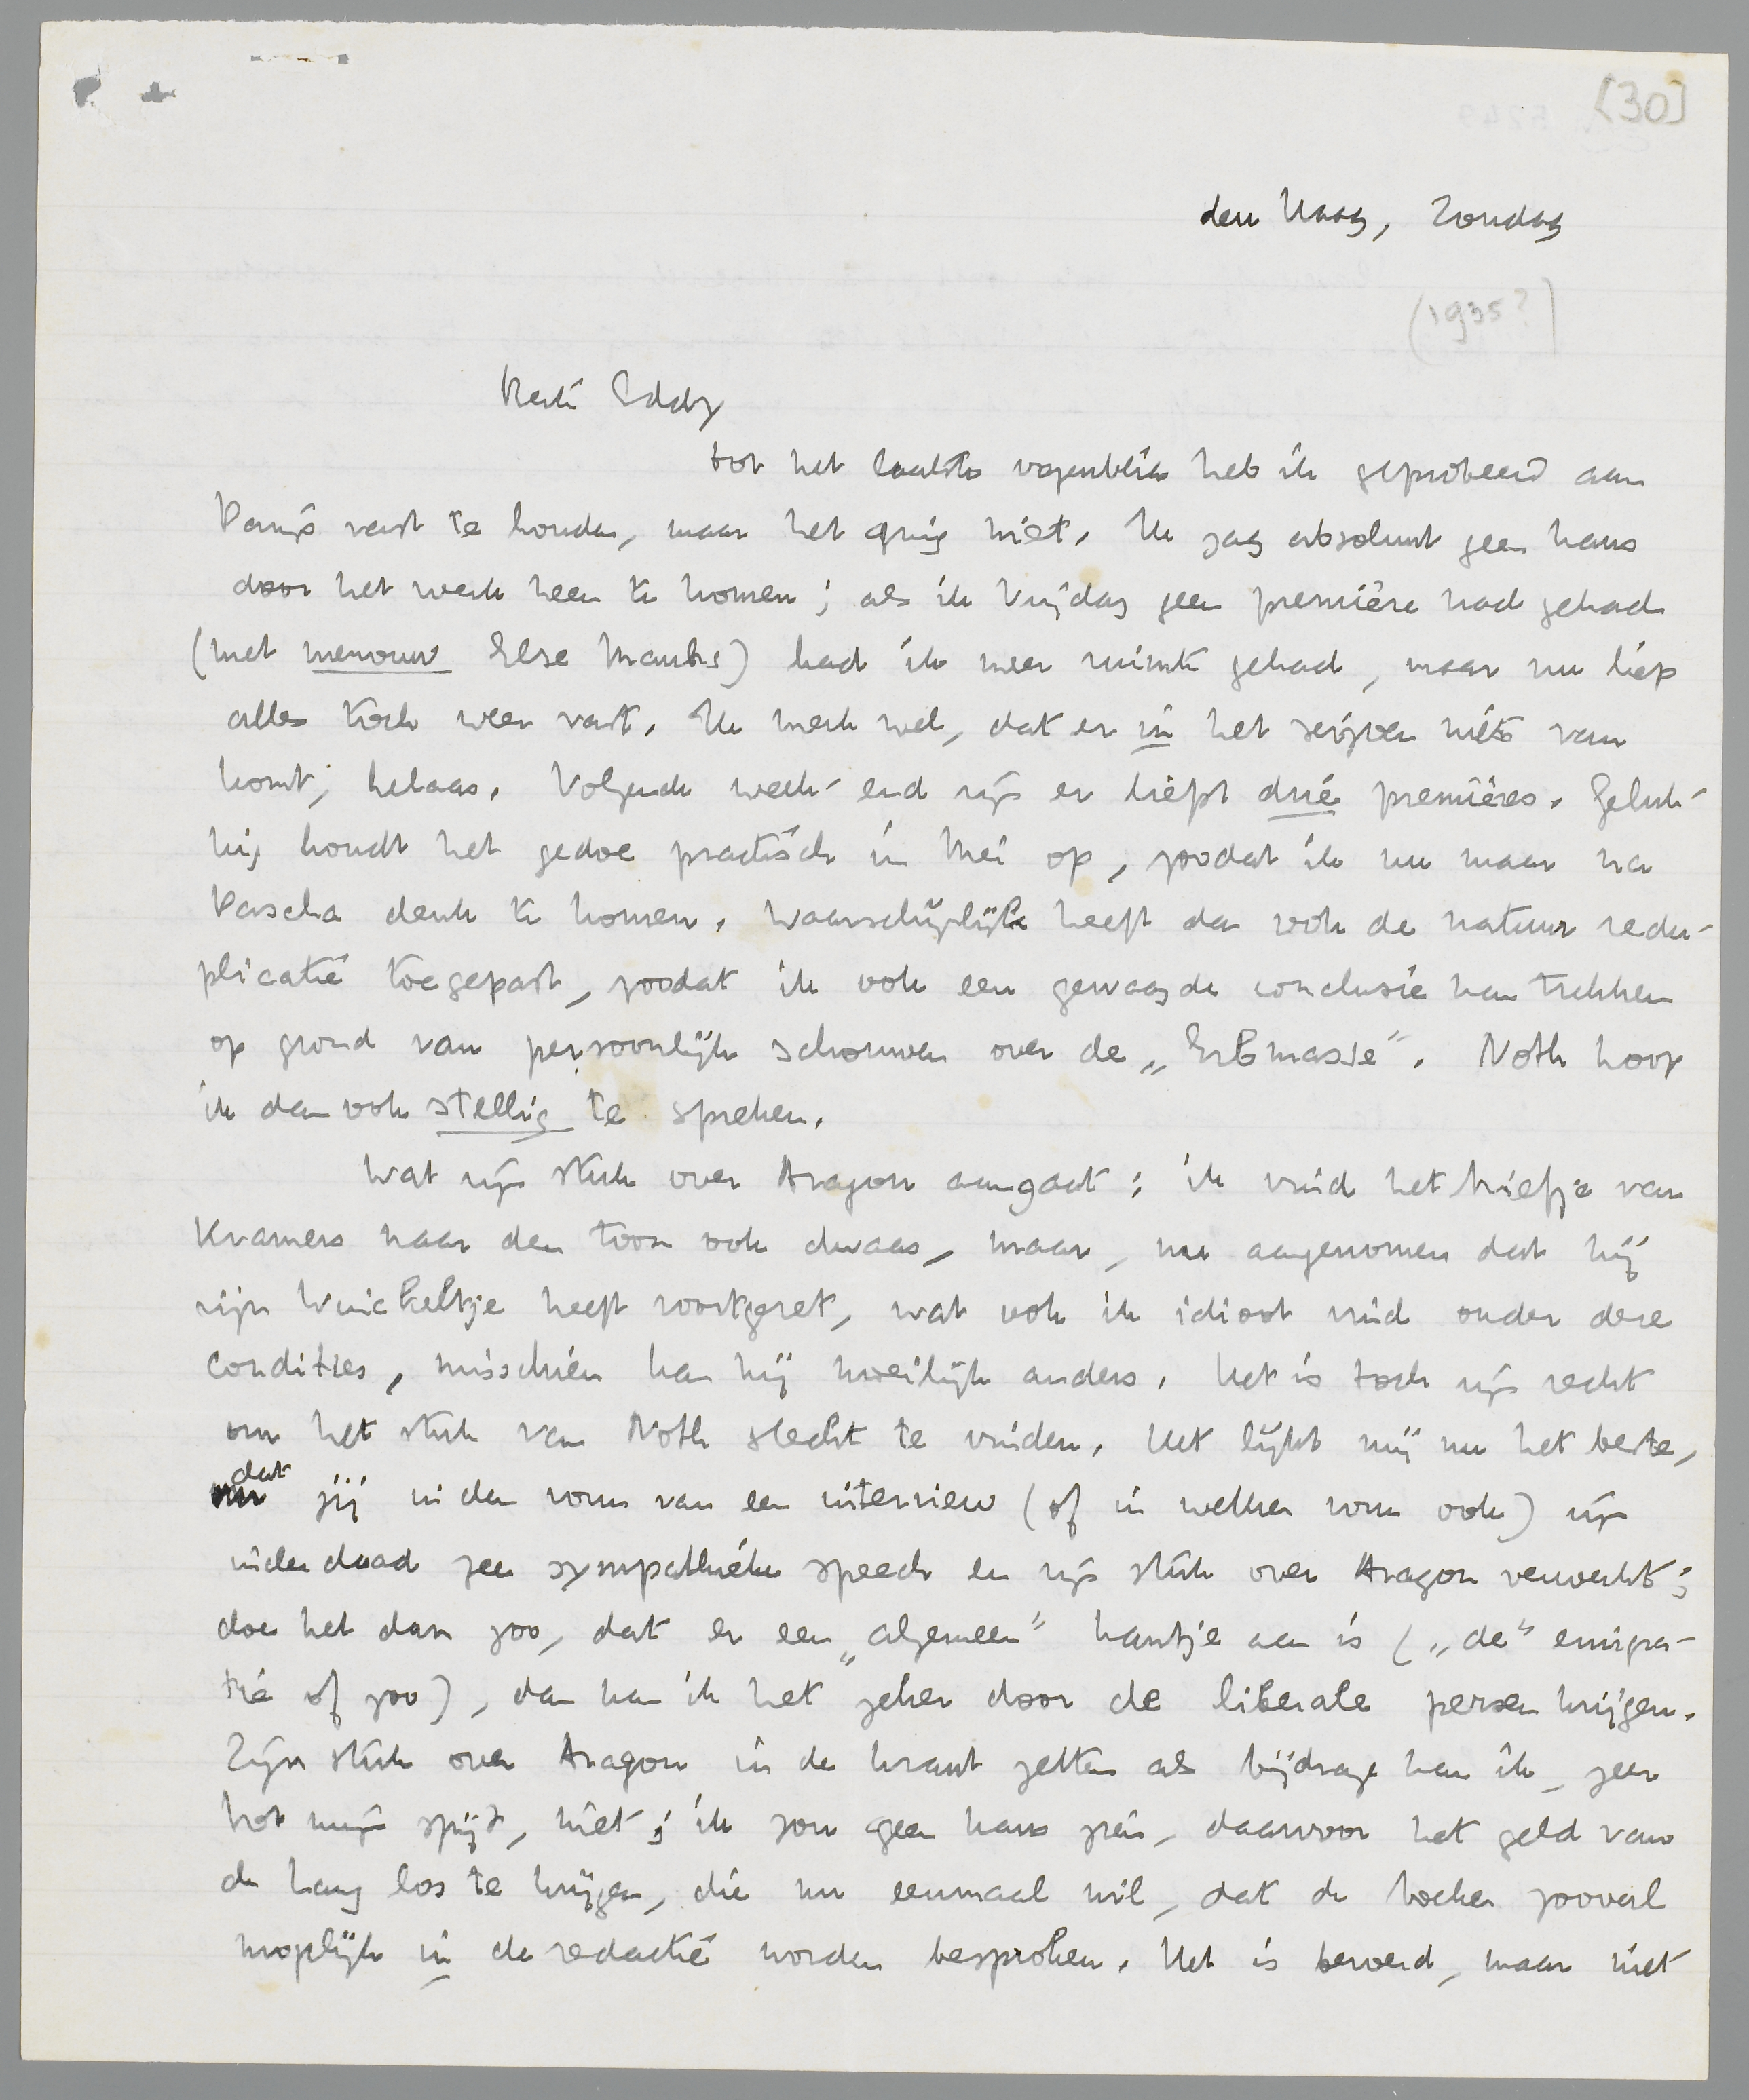 [30]
den Haag, Zondag
(1935?)
Beste Eddy
tot het laatste oogenblik heb ik geprobeerd aan
Parijs vast te houden, maar het ging niet. Ik zag absoluut geen kans
door het werk heen te komen; als ik Vrijdag geen première had gehad
(met mevrouw Else Mauhs) had ik meer ruimte gehad, maar nu liep
alles toch weer vast. Ik merk wel, dat er in het seizoen niets van
komt, helaas. Volgende week-end zijn er liefst drie premières. Geluk-
kig houdt het gedoe practisch in Mei op, zoodat ik nu maar na
Pascha denk te komen. Waarschijnlijk heeft dan ook de natuur redu-
plicatie toegepast, zoodat ik ook een gewaagde conclusie kan trekken
op grond van persoonlijk schouwen over de „Erbmasse". Noth hoop
ik dan ook stellig te spreken.
Wat zijn stuk over Aragon aangaat: ik vind het briefje van
Kramers naar den toon ook dwaas, maar, nu aangenomen dat hij
zijn Winckeltje heeft voortgezet, wat ook ik idioot vind onder deze
condities, misschien kan hij moeilijk anders. Het is toch zijn recht
om het stuk van Noth slecht te vinden. Het lijkt mij nu het beste,
dat jij in den vorm van een interview (of in welken vorm ook) zijn
inderdaad zeer sympathieke speech en zijn stuk over Aragon verwerkt;
doe het dan zoo, dat er een „algemeen" kantje aan is („de" emigra-
tie of zoo), dan kan ik het zeker door de liberale persen krijgen.
Zijn stuk over Aragon in de krant zetten als bijdrage kan ik, zeer
tot mijn spijt, niet; ik zou geen kans zien, daarvoor het geld van
de krant los te krijgen, die nu eenmaal wil, dat de boeken zooveel
mogelijk in de redactie worden besproken. Het is beroerd, maar niet